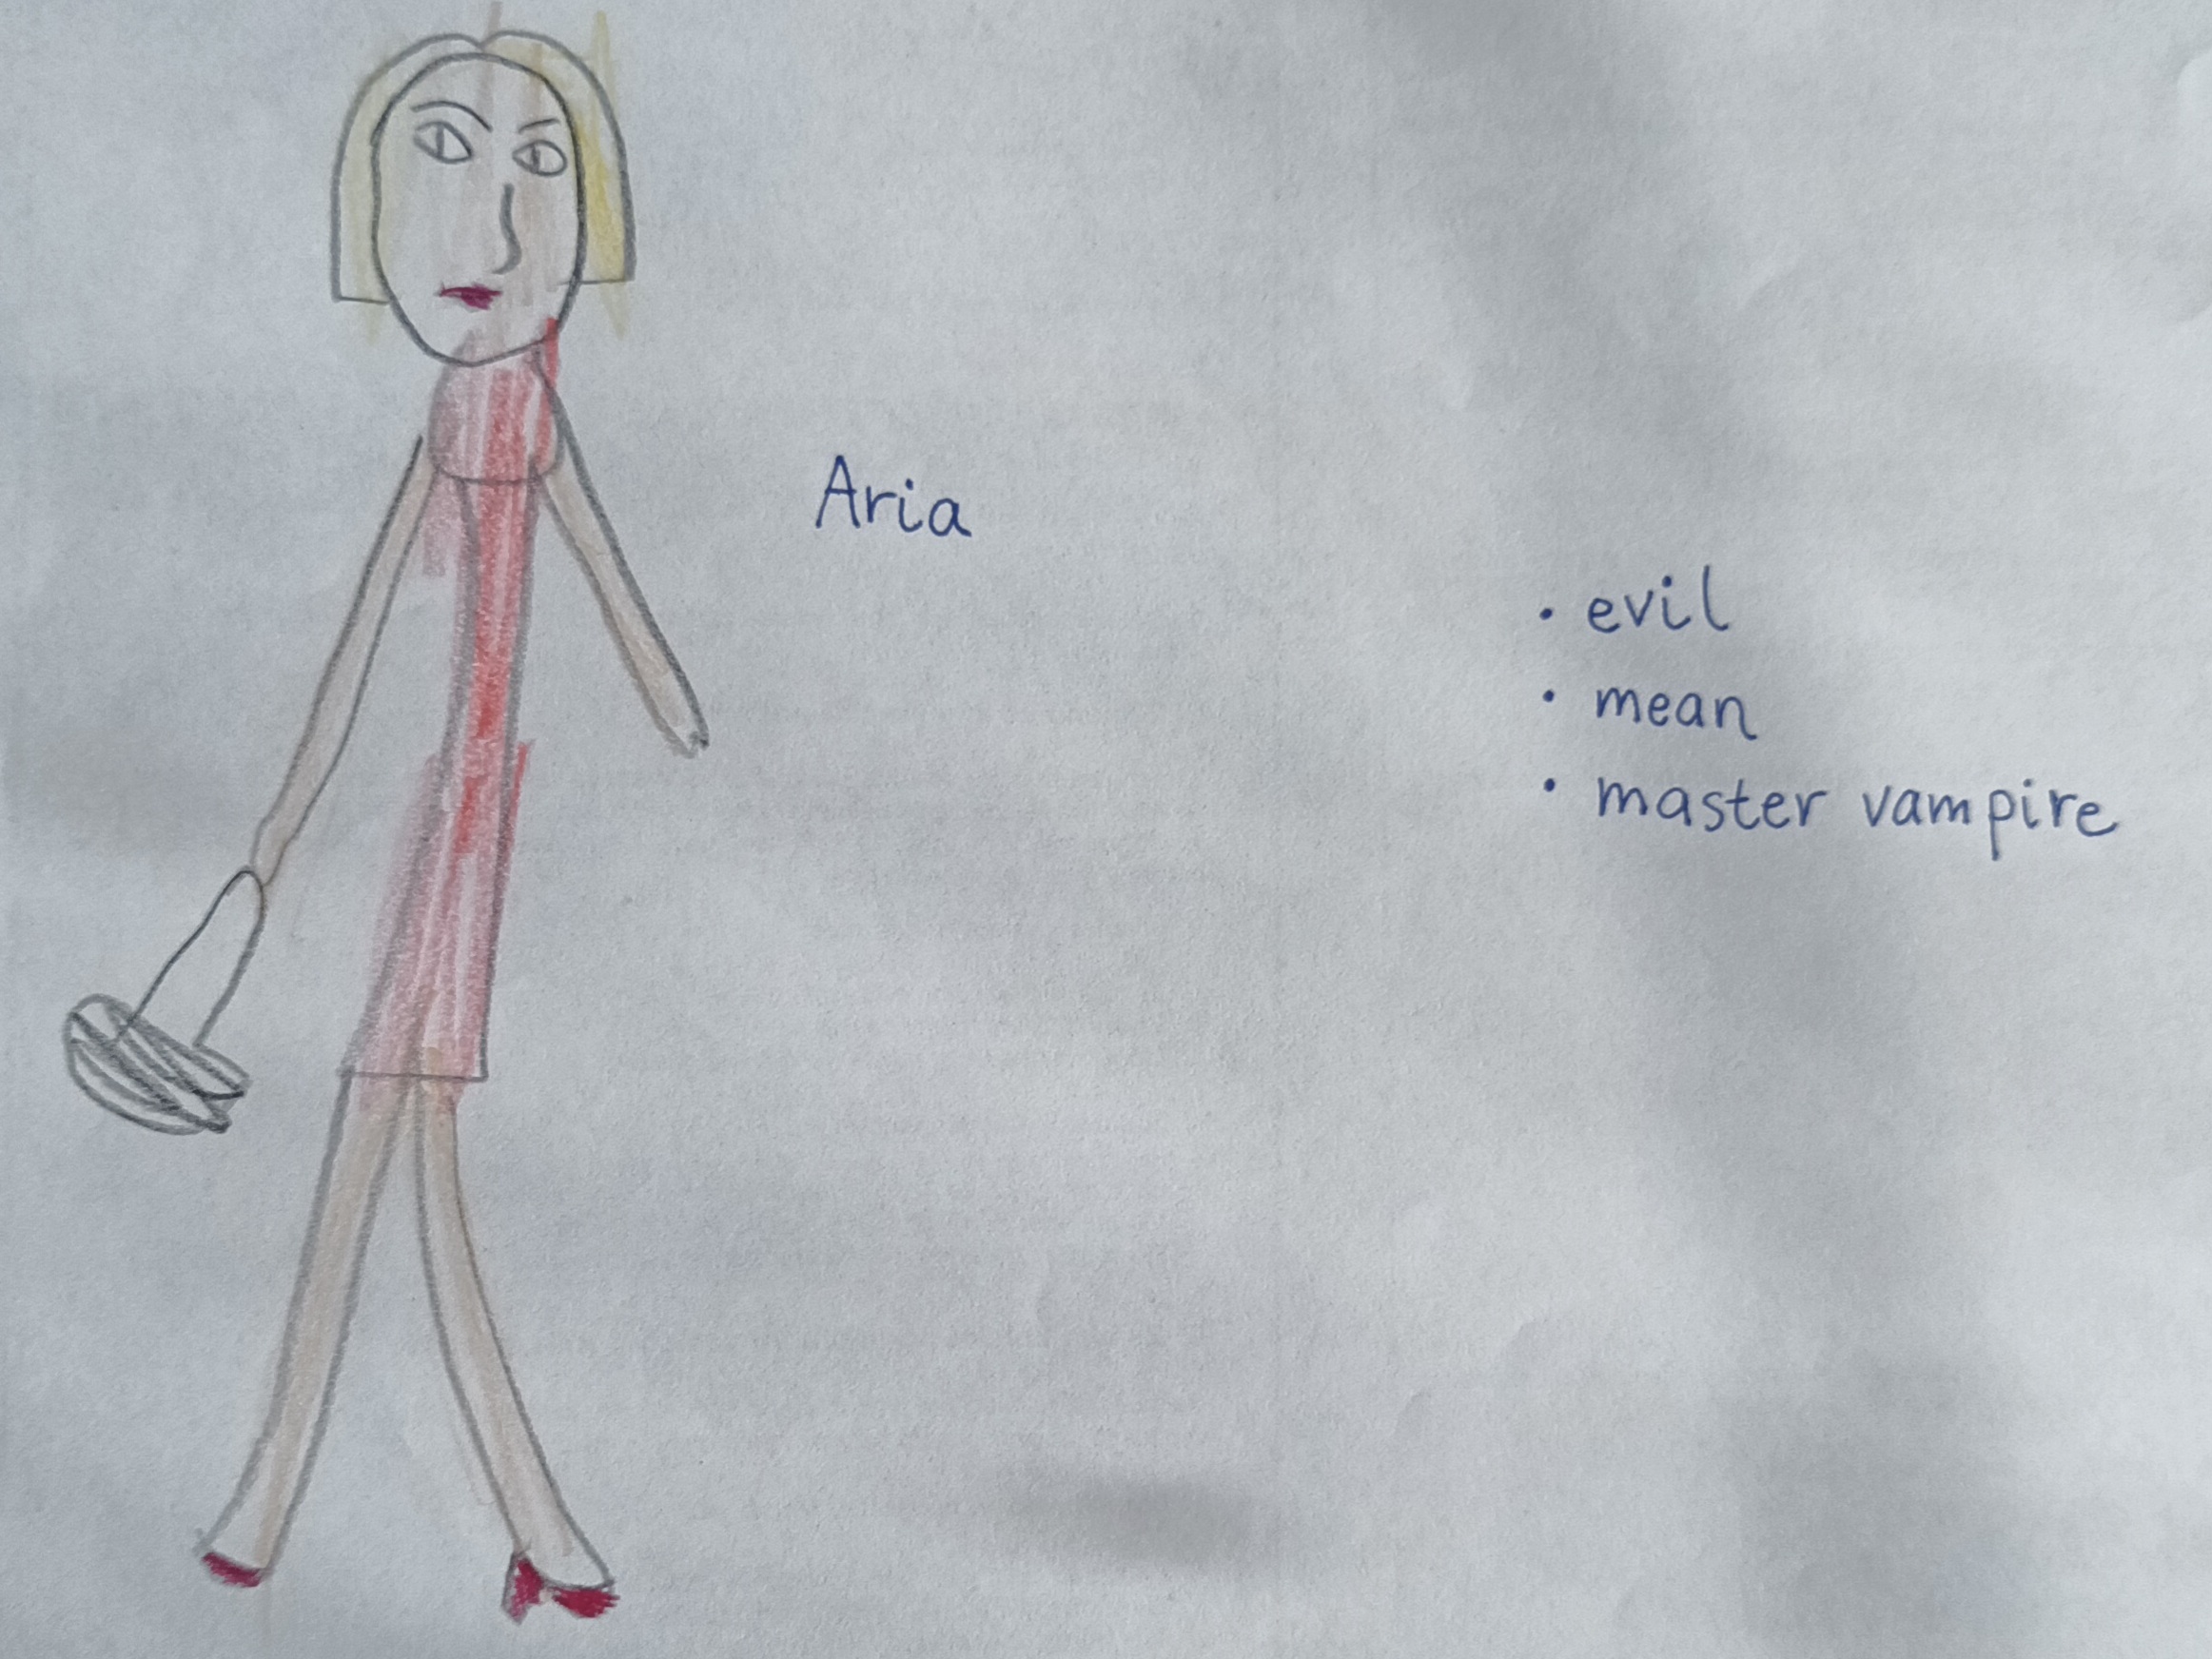 Aria
• evil
• mean
• master vampire